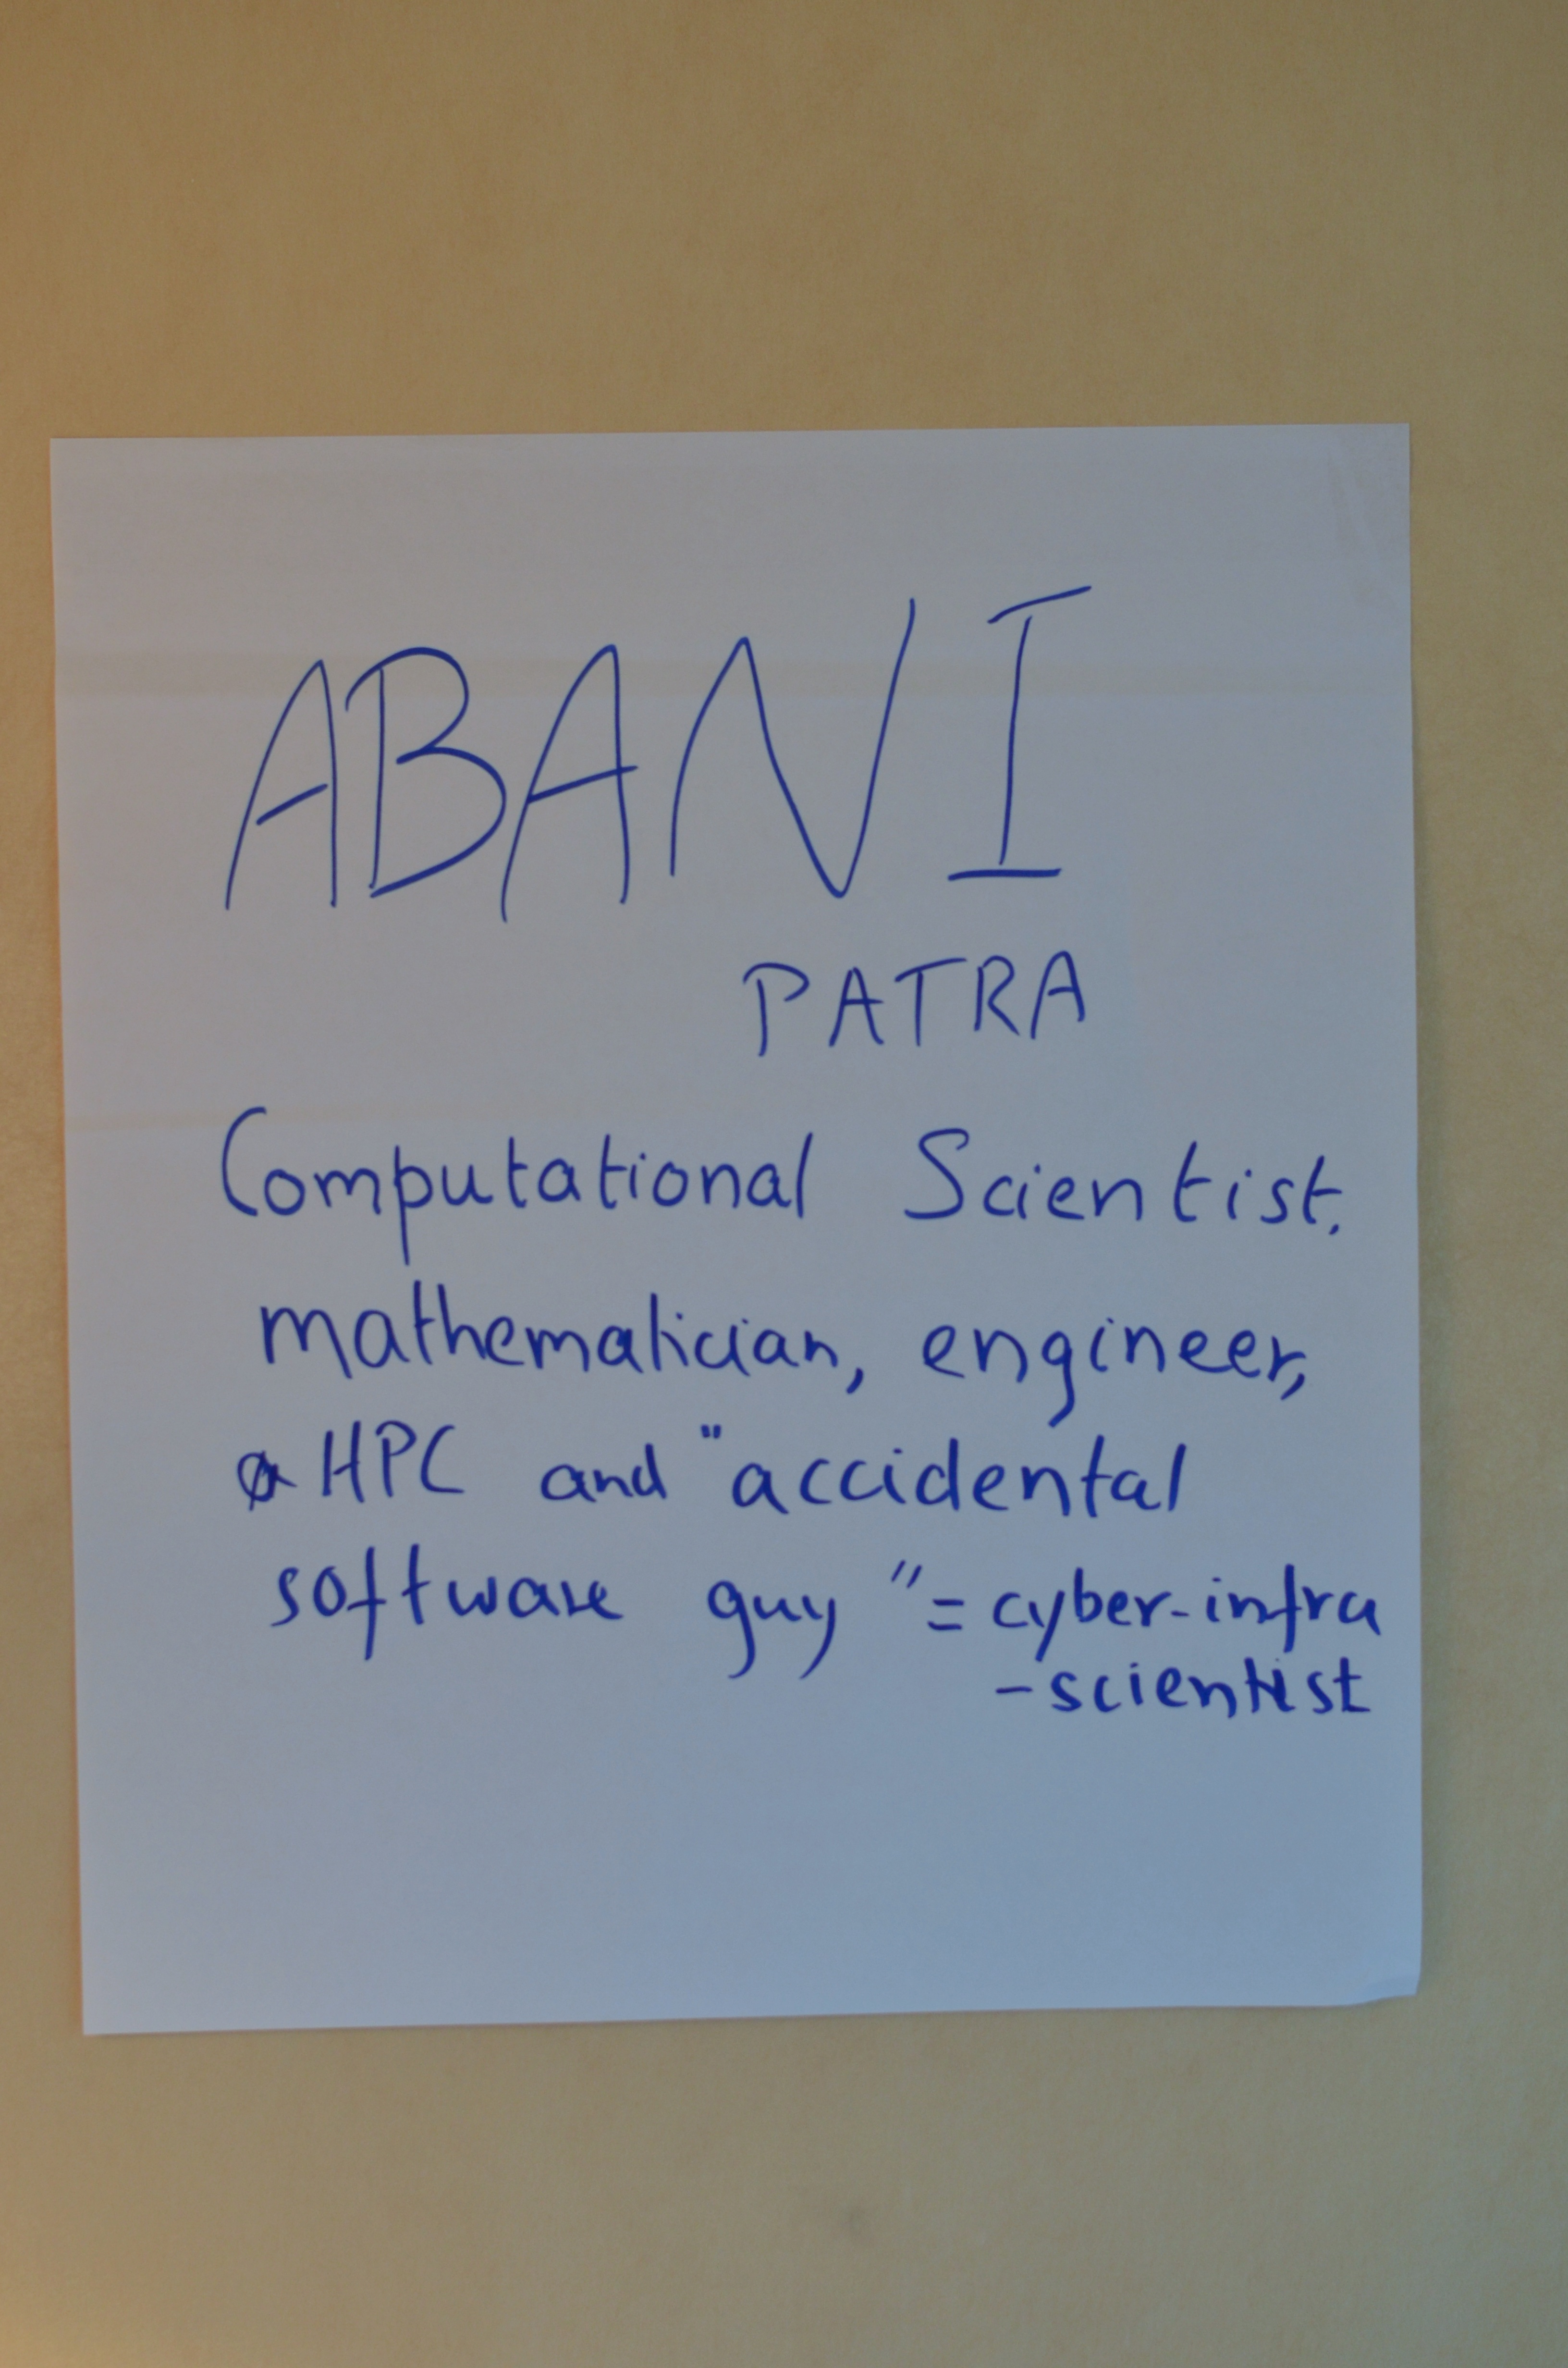 ABANI
PATRA
Computational Scientist.
mathematician, engineer,
HPC and "accidental
software guy" = cyber-infra
- scientist